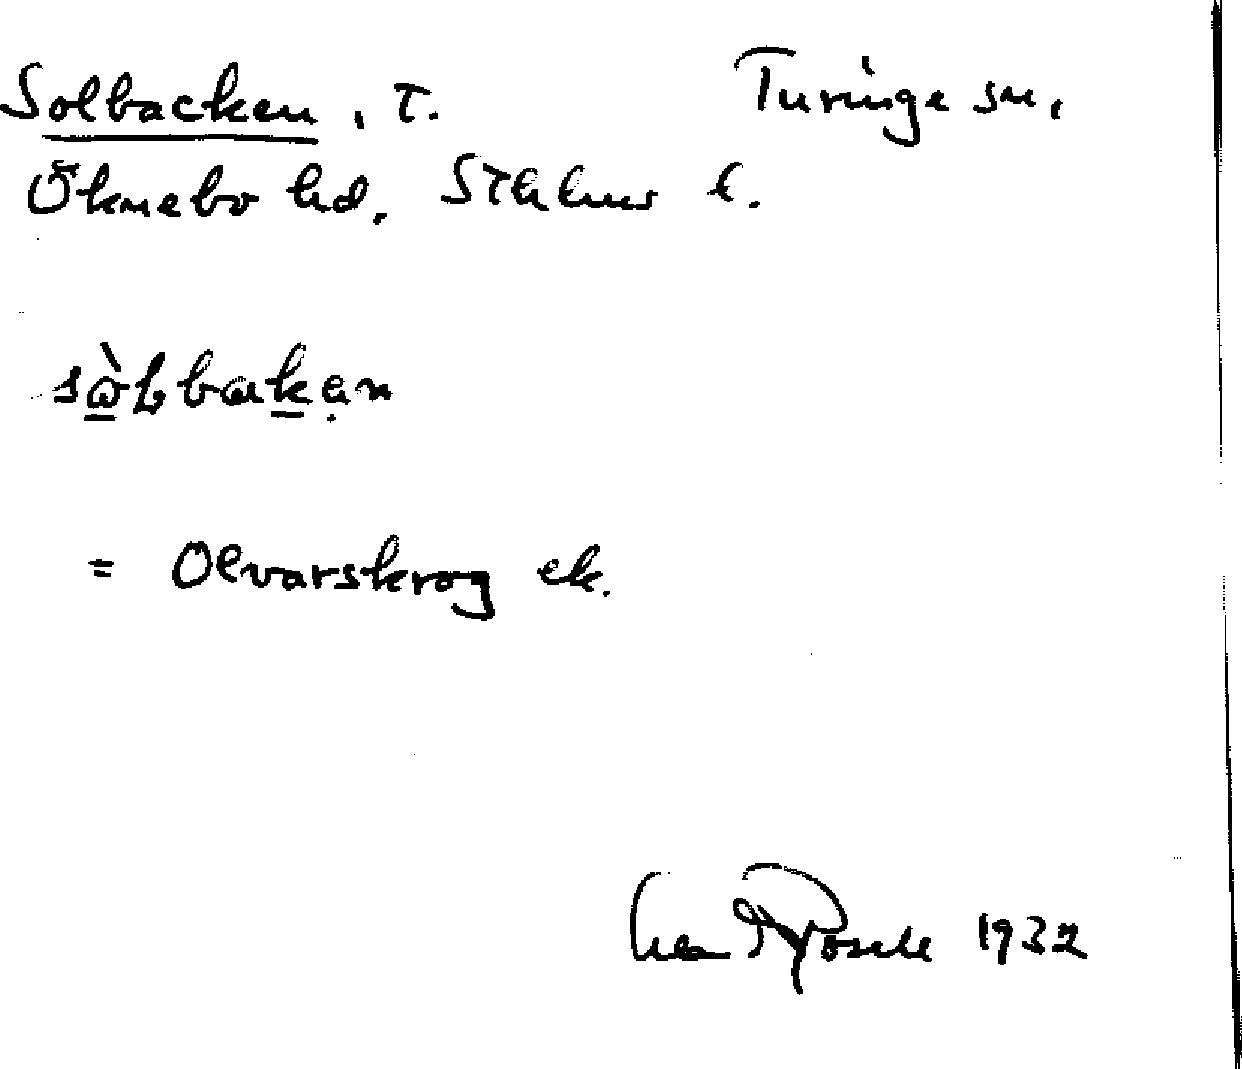 Solbacken, T. Turinge sn,
Öknebo hd. Sthlms l.
sὼƚbakẹn
= Olvarskrog ek.
1932